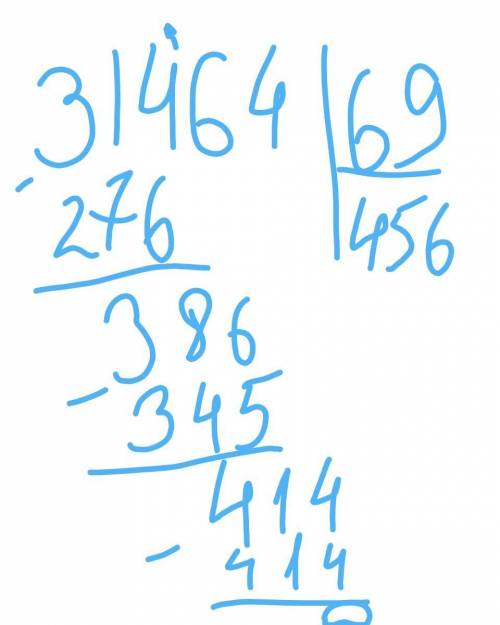 31464 69
- 276 456
386
- 345
414
- 414
0